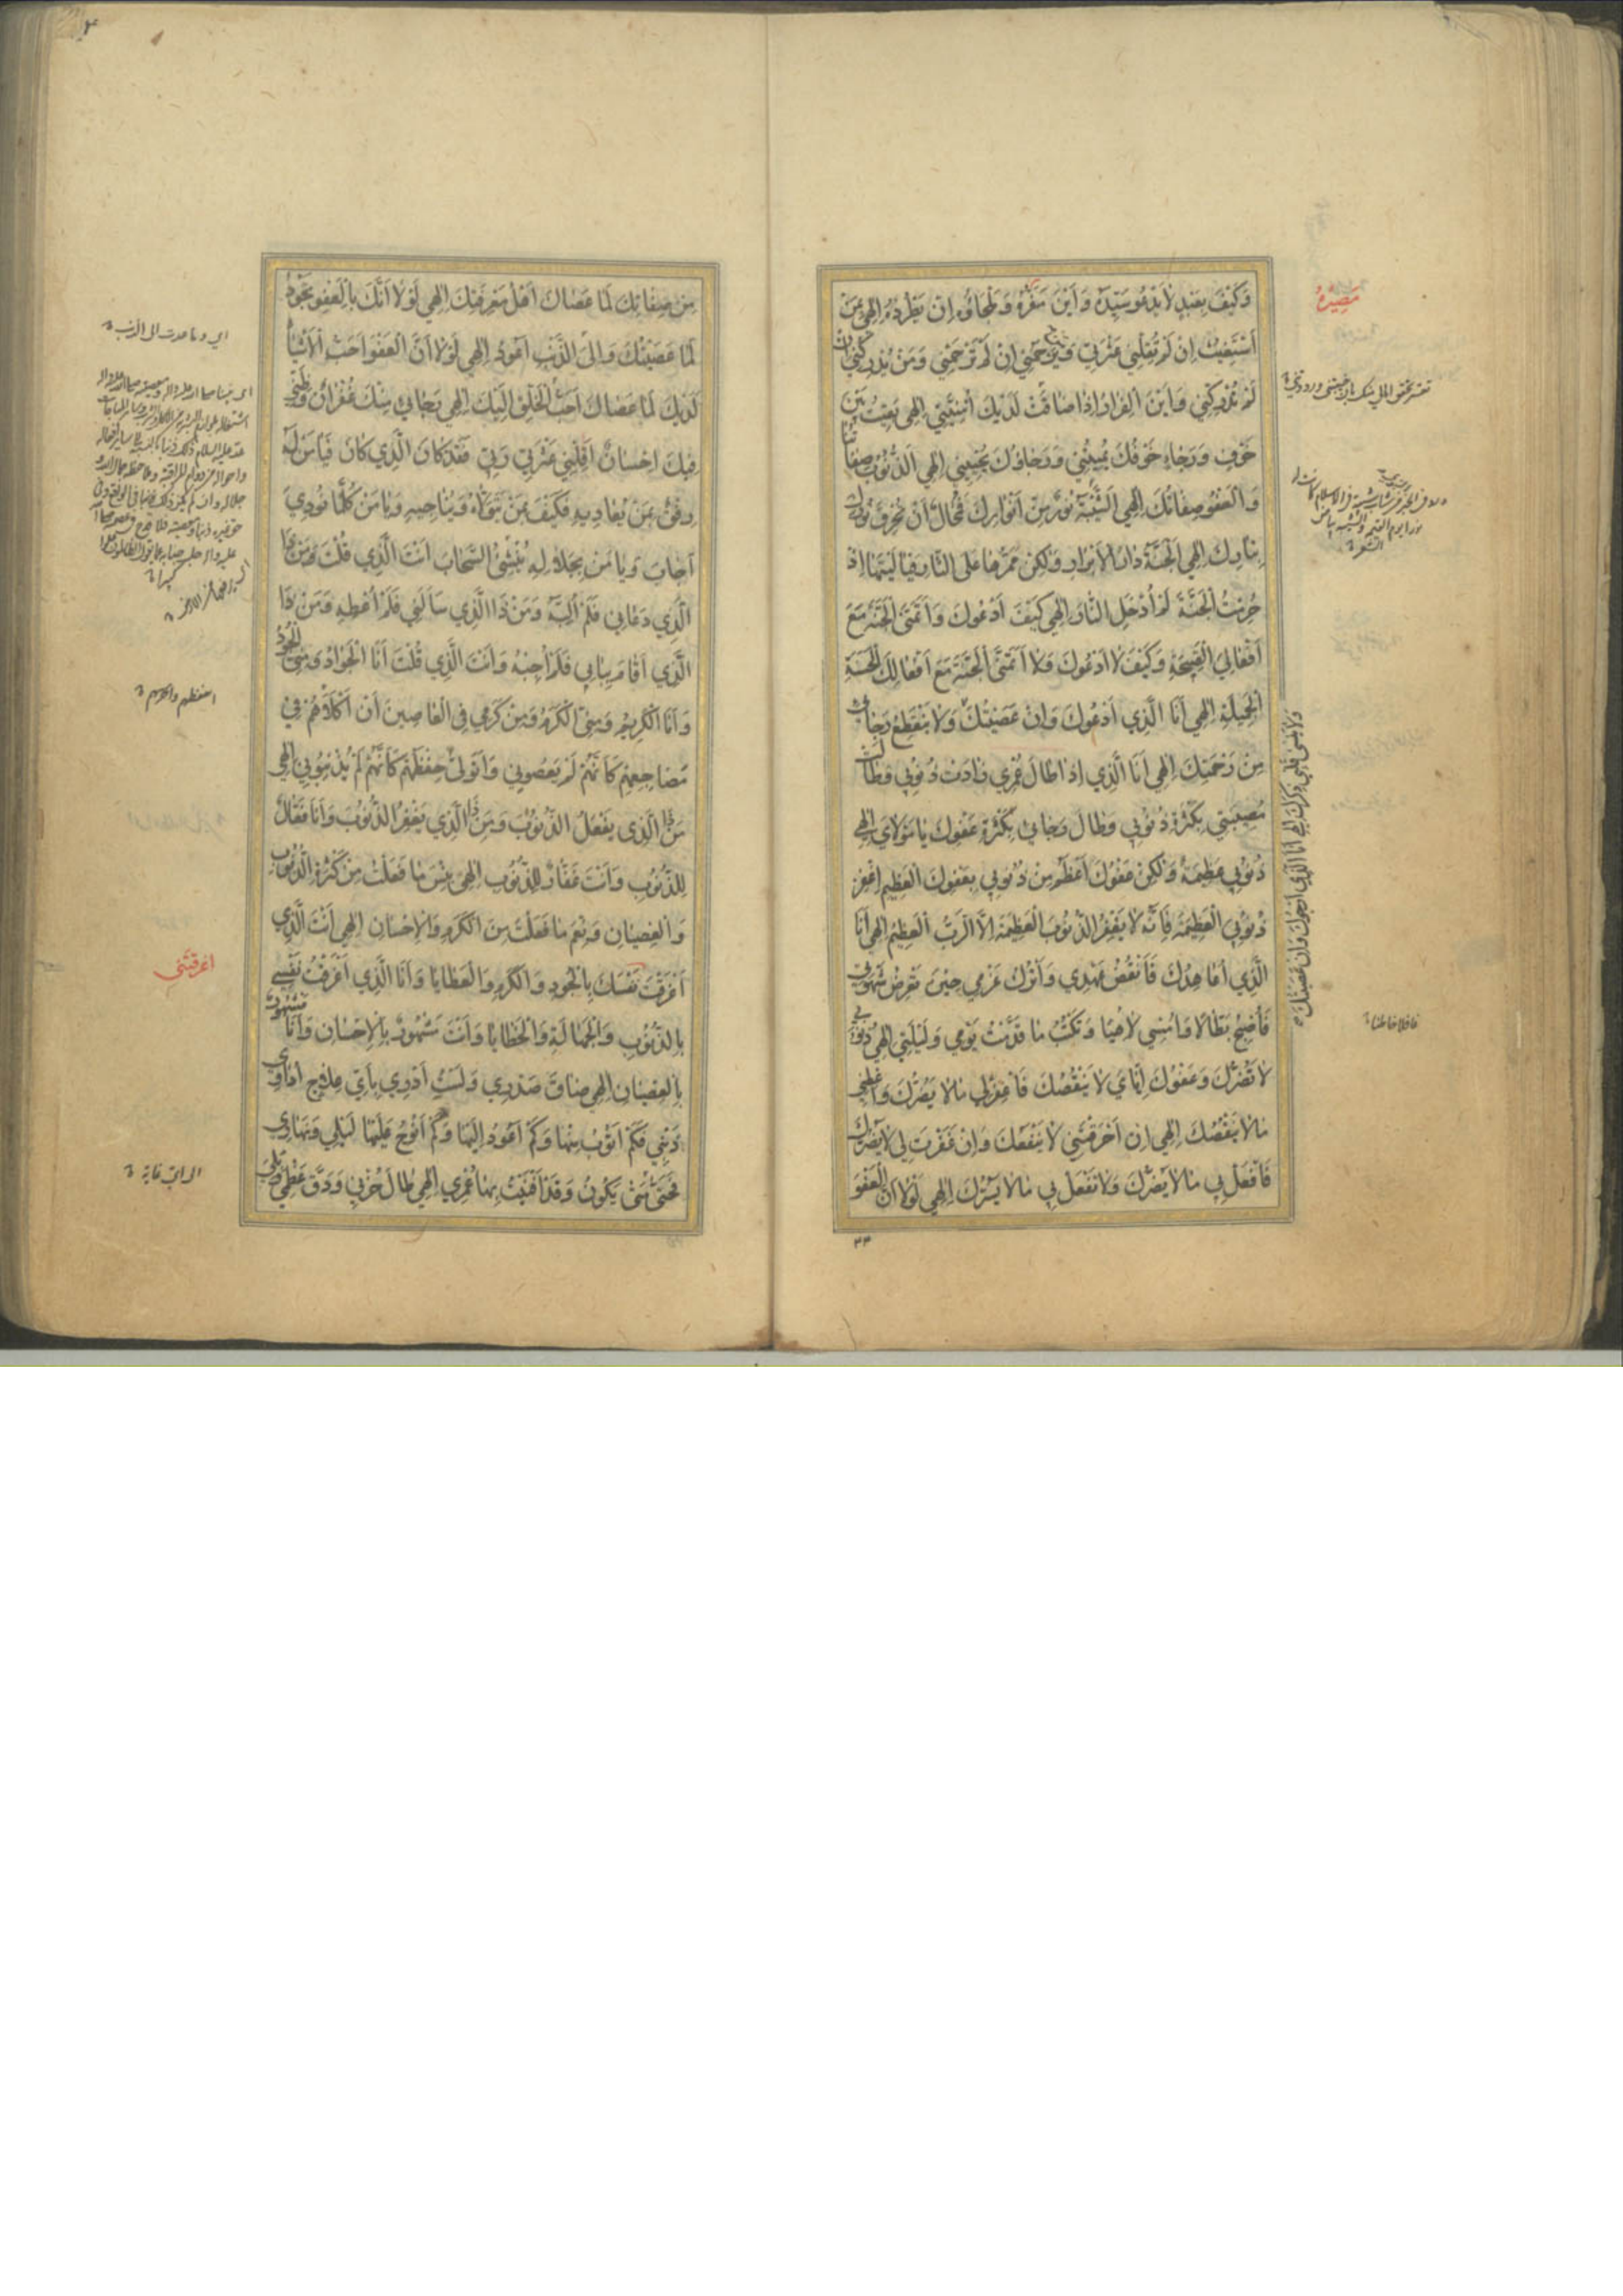 وَكَيْفَ بِعَبْدٍ لَا يَدْعُو سَيِّدَهُ وَاَيْنَ مَفَرُّهُ وَمَلْجَاؤُهُ اِنْ يَطْرُدْهُ اِلٰهِي بِمَنْ
اَسْتَغِيثُ اِنْ لَمْ تُقِلْنِي عَثْرَتِي وَمَنْ يَرْحَمُنِي اِنْ لَمْ تَرْحَمْنِي وَمَنْ يُدْرِكُنِي اِنْ
لَمْ تُدْرِكْنِي وَاَيْنَ الْفِرَارُ اِذَا ضَاقَتْ لَدَيْكَ اُمْنِيَّتِي اِلٰهِي بَقِيتُ بَيْنَ
خَوْفٍ وَرَجَاءٍ خَوْفُكَ يُمِيتُنِي وَرَجَاؤُكَ يُحْيِينِي اِلٰهِي اَلذُّنُوبُ صِفَاتُنَا
وَالْعَفْوُ صِفَاتُكَ اِلٰهِي اَلشَّيْبَةُ نُورٌ مِنْ اَنْوَارِكَ فَمُحَالٌ اَنْ تُحْرِقَ نُورَكَ
بِنَارِكَ اِلٰهِي اَلْجَنَّةُ دَارُ الْاَبْرَارِ وَلٰكِنْ مَمَرُّهَا عَلَى النَّارِ فَيَا لَيْتَهَا اِذْ
حُرِمْتُ الْجَنَّةَ لَمْ اُدْخَلِ النَّارَ اِلٰهِي كَيْفَ اَدْعُوكَ وَاَتَمَنَّى الْجَنَّةَ مَعَ
اَفْعَالِيَ الْقَبِيحَةِ وَكَيْفَ لَا اَدْعُوكَ وَلَا اَتَمَنَّى الْجَنَّةَ مَعَ اَفْعَالِكَ الْحَسَنَةِ
الْجَمِيلَةِ اِلٰهِي اَنَا الَّذِي اَدْعُوكَ وَاِنْ عَصَيْتُكَ وَلَا يَنْقَطِعُ رَجَائِي
مِنْ رَحْمَتِكَ اِلٰهِي اَنَا الَّذِي اِذَا طَالَ عُمْرِي زَادَتْ ذُنُوبِي وَطَالَتْ
مُصِيبَتِي بِكَثْرَةِ ذُنُوبِي وَطَالَ رَجَائِي بِكَثْرَةِ عَفْوِكَ يَا مَوْلَايَ اِلٰهِي
ذُنُوبِي عَظِيمَةٌ وَلٰكِنْ عَفْوُكَ اَعْظَمُ مِنْ ذُنُوبِي بِعَفْوِكَ الْعَظِيمِ اغْفِرْ
ذُنُوبِيَ الْعَظِيمَةَ فَاِنَّهُ لَا يَغْفِرُ الذُّنُوبَ الْعَظِيمَةَ اِلَّا الرَّبُّ الْعَظِيمُ اِلٰهِي اَنَا
الَّذِي اُعَاهِدُكَ فَاَنْقُضُ عَهْدِي وَاَتْرُكُ عَزْمِي حِينَ تَعْرِضُ شَهْوَتِي
فَاُصْبِحُ بَطَّالًا وَاُمْسِي لَاهِيًا وَتَكْتُبُ مَا قَدَّمْتُ يَوْمِي وَلَيْلَتِي اِلٰهِي ذُنُوبِي
لَا تَضُرُّكَ وَعَفْوُكَ اِيَّايَ لَا يَنْقُصُكَ فَاغْفِرْلِي مَا لَا يَضُرُّكَ وَاعْطِنِي
مَا لَا يَنْقُصُكَ اِلٰهِي اِنْ اَحْرَقْتَنِي لَا يَنْفَعُكَ وَاِنْ غَفَرْتَ لِي لَا يَضُرُّكَ
فَافْعَلْ بِي مَا لَا يَضُرُّكَ وَلَا تَفْعَلْ بِي مَا لَا يَسُرُّكَ اِلٰهِي لَوْلَا اَنَّ الْعَفْوَ
مَصِيرُهُ
٣٣
مِنْ صِفَاتِكَ لَمَا عَصَاكَ اَهْلُ مَعْرِفَتِكَ اِلٰهِي لَوْلَا اَنَّكَ بِالْعَفْوِ تَجُودُ
لَمَا عَصَيْتُكَ وَاِلَى الذَّنْبِ اَعُودُ اِلٰهِي لَوْلَا اَنَّ الْعَفْوَ اَحَبُّ الْاَشْيَاءِ
لَدَيْكَ لَمَا عَصَاكَ اَحَبُّ الْخَلْقِ اِلَيْكَ اِلٰهِي رَجَائِي مِنْكَ غُفْرَانٌ وَظَنِّي
فِيكَ اِحْسَانٌ اَقِلْنِي عَثْرَتِي رَبِّي فَقَدْ كَانَ الَّذِي كَانَ فَيَا مَنْ لَهُ
رِفْقٌ بِمَنْ يُعَادِيهِ فَكَيْفَ بِمَنْ يَتَوَلَّاهُ وَيُنَاجِيهِ وَيَا مَنْ كُلَّمَا نُودِيَ
اَجَابَ وَيَا مَنْ بِجَلَالِهِ يُنْشِئُ السَّحَابَ اَنْتَ الَّذِي قُلْتَ وَمَنْ ذَا
الَّذِي دَعَانِي فَلَمْ اُلَبِّهِ وَمَنْ ذَا الَّذِي سَاَلَنِي فَلَمْ اُعْطِهِ وَمَنْ ذَا
الَّذِي اَقَامَ بِبَابِي فَلَمْ اُجِبْهُ وَاَنْتَ الَّذِي قُلْتَ اَنَا الْجَوَادُ وَمِنِّي الْجُودُ
وَاَنَا الْكَرِيمُ وَمِنِّي الْكَرَمُ وَمِنْ كَرَمِي فِي الْعَاصِينَ اَنْ اَكْلَاَهُمْ فِي
مَضَاجِعِهِمْ كَاَنَّهُمْ لَمْ يَعْصُونِي وَاَتَوَلّٰى حِفْظَهُمْ كَاَنَّهُمْ لَمْ يُذْنِبُوا اِلٰهِي
مَنْ ذَا الَّذِي يَفْعَلُ الذُّنُوبَ وَمَنْ ذَا الَّذِي يَغْفِرُ الذُّنُوبَ وَاَنَا فَعَّالٌ
لِلذُّنُوبِ وَاَنْتَ غَفَّارٌ لِلذُّنُوبِ اِلٰهِي بِئْسَ مَا فَعَلْتُ مِنْ كَثْرَةِ الذُّنُوبِ
وَالْعِصْيَانِ وَنِعْمَ مَا فَعَلْتَ مِنَ الْكَرَمِ وَالْاِحْسَانِ اِلٰهِي اَنْتَ الَّذِي
اَغْرَقْتَ نَفْسَكَ بِالْجُودِ وَالْكَرَمِ وَالْعَطَايَا وَاَنَا الَّذِي اَغْرَقْتُ نَفْسِي
بِالذُّنُوبِ وَالْجَهَالَةِ وَالْخَطَايَا وَاَنْتَ مَشْهُورٌ بِالْاِحْسَانِ وَاَنَا مَشْهُورٌ
بِالْعِصْيَانِ اِلٰهِي ضَاقَ صَدْرِي وَلَسْتُ اَدْرِي بِاَيِّ عِلَاجٍ اُدَاوِي
ذَنْبِي فَكَمْ اَتُوبُ مِنْهَا وَكَمْ اَعُودُ اِلَيْهَا وَكَمْ اَنُوحُ عَلَيْهَا لَيْلِي وَنَهَارِي
فَحَتّٰى مَتٰى يَكُونُ وَقَدْ اَفْنَيْتُ بِهَا عُمْرِي اِلٰهِي طَالَ حُزْنِي وَدَقَّ عَظْمِي وَبَلِيَ
اي وما عدت الى الذنب
اغرقتنى